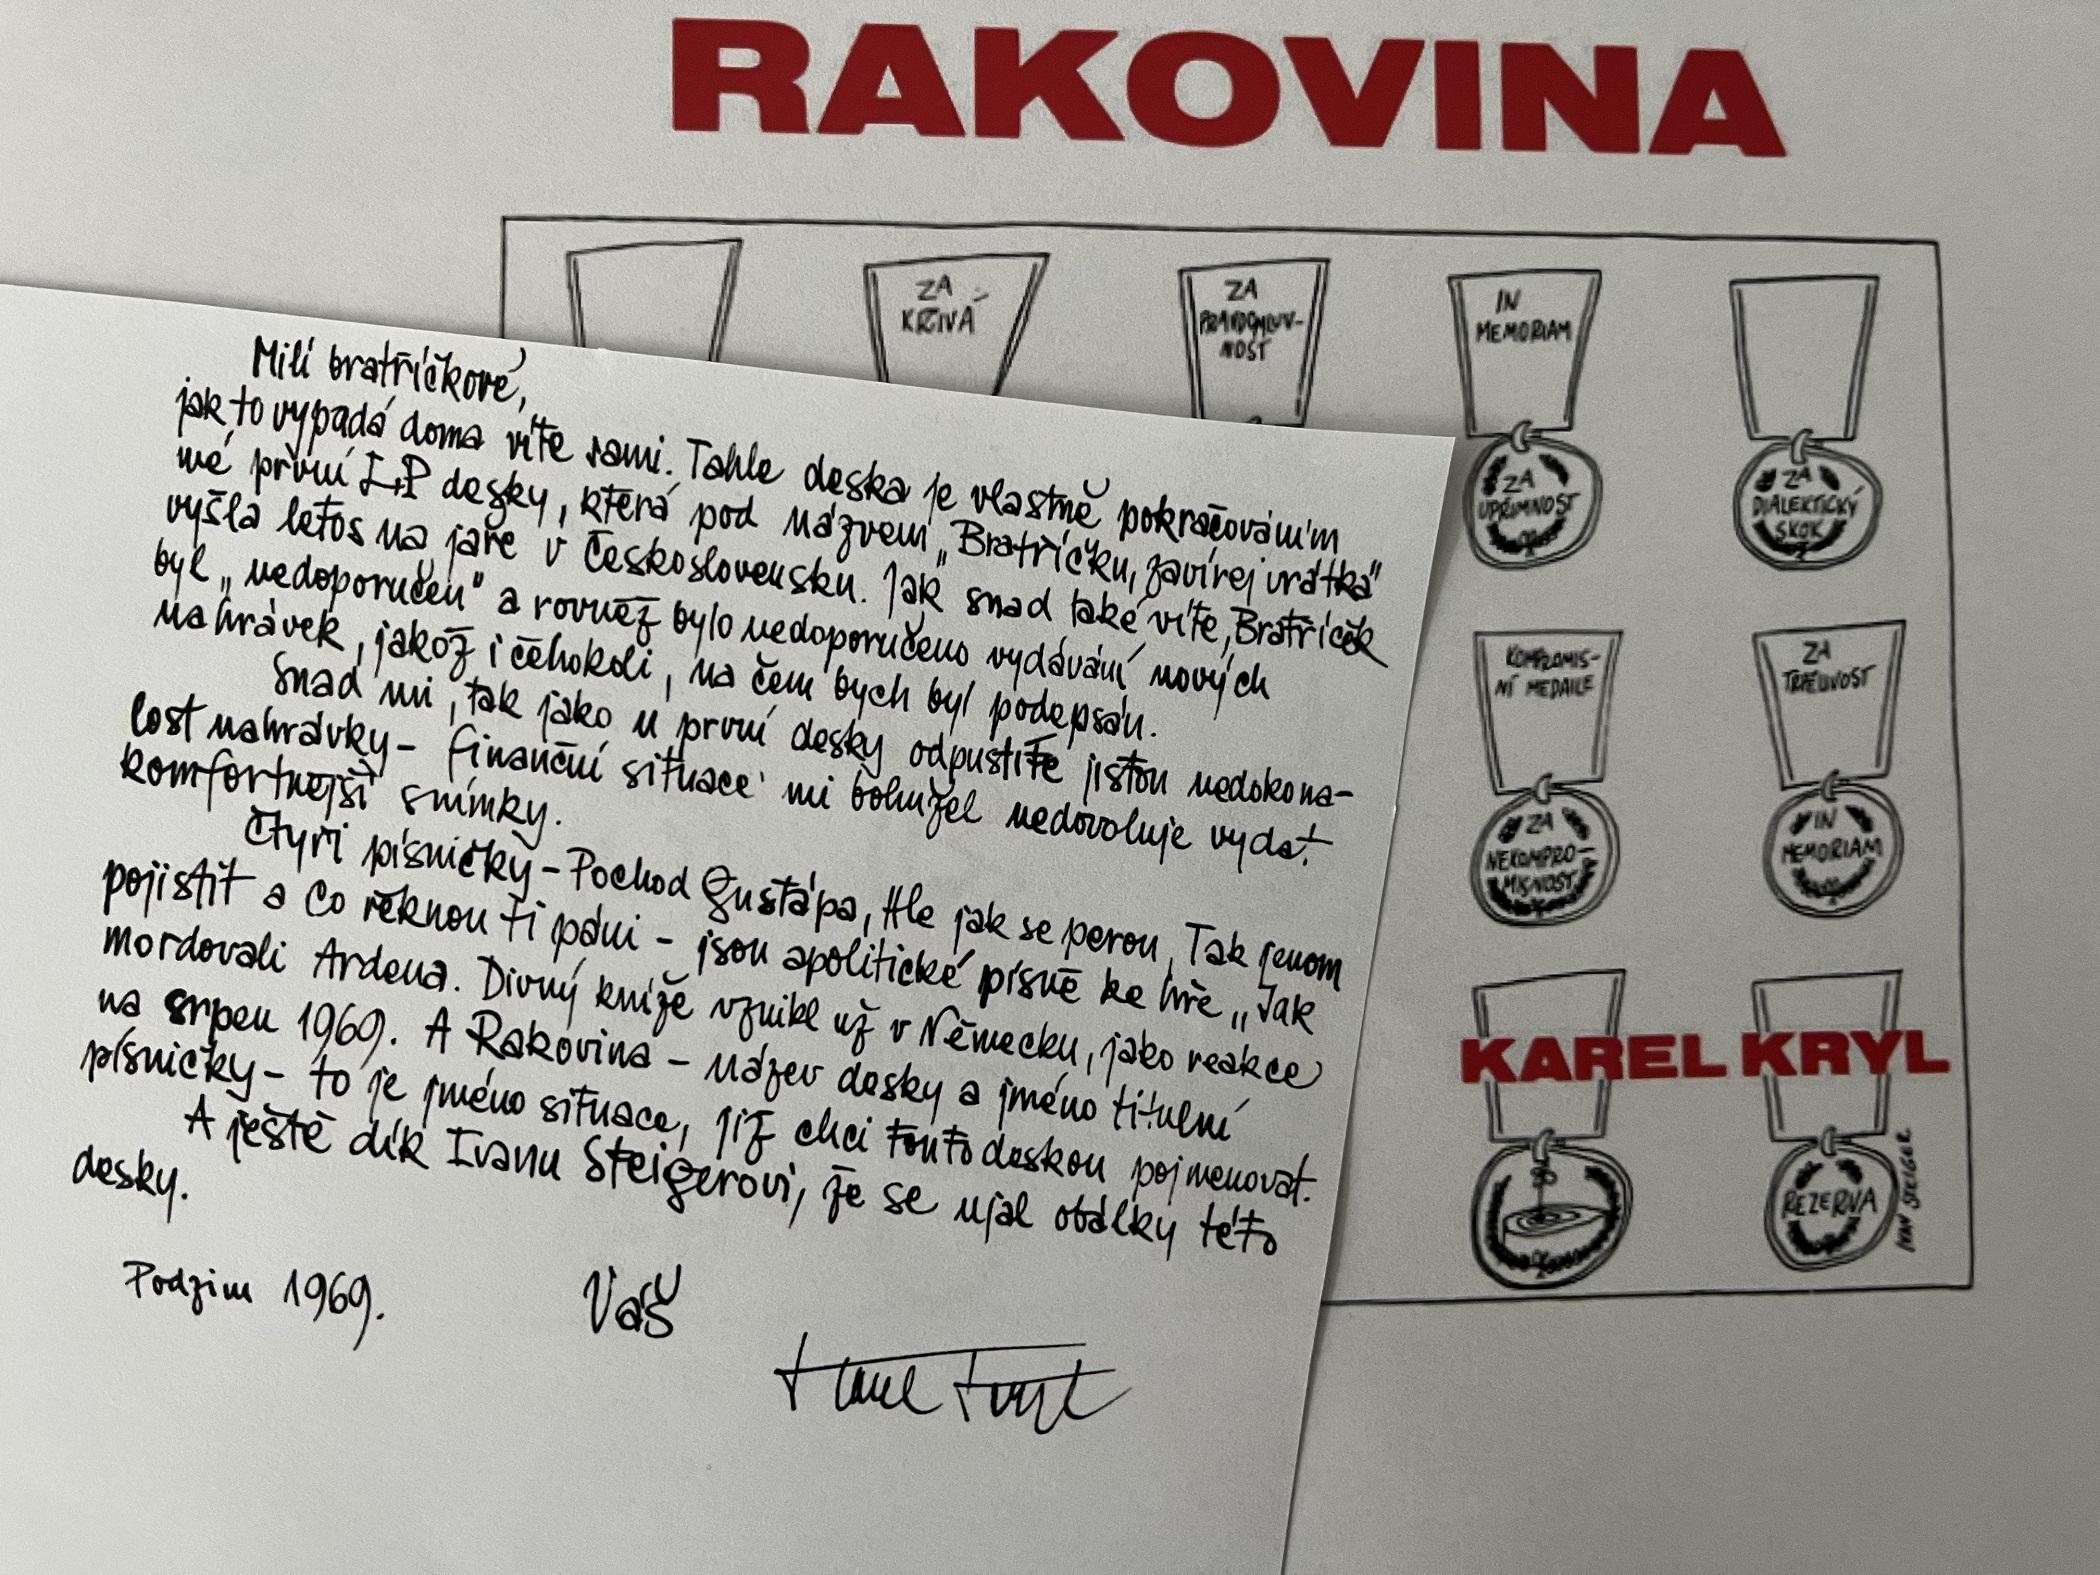 RAKOVINA
ZA
KŘIVÁ
ZA
PRAVDOMLUV-
NOST
IN
MEMORIAM
ZA
UPŘÍMNOST
ZA
DIALEKTICKÝ
SKOK
KOMPROMIS-
NÍ MEDAILE
ZA
NEKOMPRO-
MISNOST
ZA
TRPĚLIVOST
IN
MEMORIAM
KAREL KRYL
REZERVA
IVAN STEIGER
Milí bratříčkové,
jak to vypadá doma víte sami. Tahle deska je vlastně pokračováním
mé první LP desky, která pod názvem „Bratříčku, zavírej vrátka"
vyšla letos na jaře v Československu. Jak snad také víte, Bratříček
byl „nedoporučen" a rovněž bylo nedoporučeno vydávání nových
nahrávek, jakož i čehokoli, na čem bych byl podepsán.
Snad mi, tak jako u první desky odpustíte jistou nedokona-
lost nahrávky – finanční situace mi bohužel nedovoluje vydat
komfortnější snímky.
Čtyři písničky – Pochod Gustápa, Hle jak se perou, Tak jenom
pojistit a Co řeknou ti páni – jsou apolitické písně ke hře „Jak
mordovali Ardena. Divný kníže vznikl už v Německu, jako reakce
na srpen 1969. A Rakovina – název desky a jméno titulní
písničky – to je jméno situace, jíž chci touto deskou pojmenovat.
A ještě dík Ivanu Steigerovi, že se ujal obálky této
desky.
Podzim 1969.
Váš
Karel Kryl